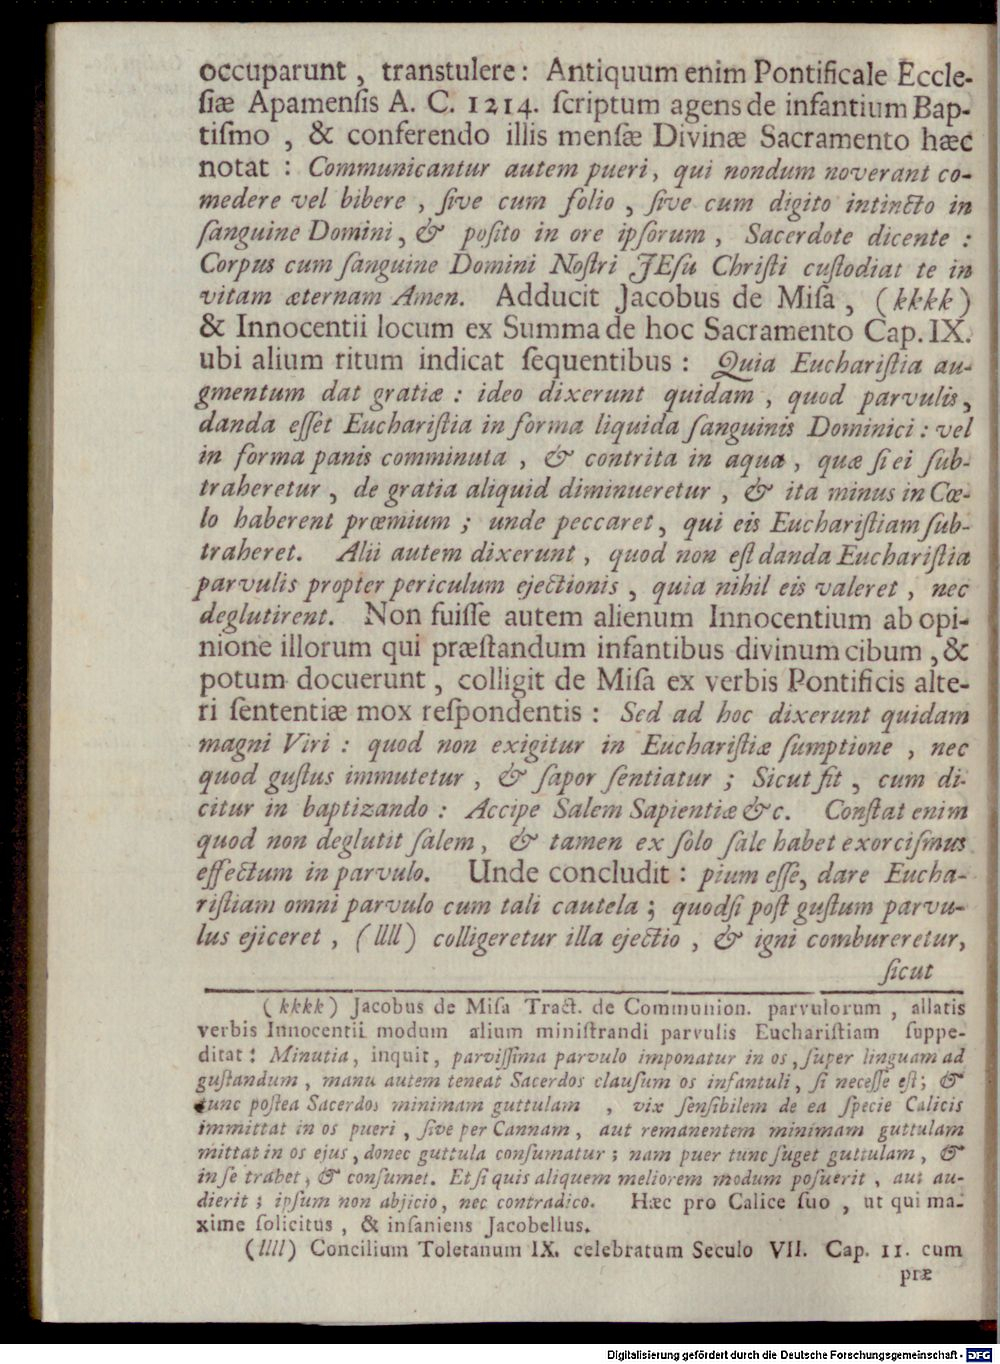 occuparunt, transtulere: Antiquum enim Pontificale Eccle-
siæ Apamensis A. C. 1214. scriptum agens de infantium Bap-
tismo, & conferendo illis mensæ Divinæ Sacramento hæc
notat: Communicantur autem pueri, qui nondum noverant co-
medere vel bibere, sive cum folio, sive cum digito intincto in
sanguine Domini, & posito in ore ipsorum, Sacerdote dicente:
Corpus cum sanguine Domini Nostri JEsu Christi custodiat te in
vitam æternam Amen. Adducit Jacobus de Misa, (kkkk)
& Innocentii locum ex Summa de hoc Sacramento Cap. IX.
ubi alium ritum indicat sequentibus: Quia Eucharistia au-
gmentum dat gratiæ: ideo dixerunt quidam, quod parvulis,
danda esset Eucharistia in forma liquida sanguinis Dominici: vel
in forma panis comminuta, & contrita in aqua, quæ si ei sub-
traheretur, de gratia aliquid diminueretur, & ita minus in Cœ-
lo haberent præmium; unde peccaret, qui eis Eucharistiam sub-
traheret. Alii autem dixerunt, quod non est danda Eucharistia
parvulis propter periculum ejectionis, quia nihil eis valeret, nec
deglutirent. Non fuisse autem alienum Innocentium ab opi-
nione illorum qui præstandum infantibus divinum cibum, &
potum docuerunt, colligit de Misa ex verbis Pontificis alte-
ri sententiæ mox respondentis: Sed ad hoc dixerunt quidam
magni Viri: quod non exigitur in Eucharistiæ sumptione, nec
quod gustus immutetur, & sapor sentiatur; Sicut fit, cum di-
citur in baptizando: Accipe Salem Sapientiæ &c. Constat enim
quod non deglutit salem, & tamen ex solo sale habet exorcismus
effectum in parvulo. Unde concludit: pium esse, dare Eucha-
ristiam omni parvulo cum tali cautela; quodsi post gustum parvu-
lus ejiceret, (llll) colligeretur illa ejectio, & igni combureretur,
sicut
(kkkk) Jacobus de Misa Tract. de Communion. parvulorum, allatis
verbis Innocentii modum alium ministrandi parvulis Eucharistiam suppe-
ditat: Minutia, inquit, parvissima parvulo imponatur in os, super linguam ad
gustandum, manu autem teneat Sacerdos clausum os infantuli, si necesse est; &
tunc postea Sacerdos minimam guttulam, vix sensibilem de ea specie Calicis
immittat in os pueri, sive per Cannam, aut remanentem minimam guttulam
mittat in os ejus, donec guttula consumatur; nam puer tunc suget guttulam, &
in se trahet, & consumet. Et si quis aliquem meliorem modum posuerit, aut au-
dierit; ipsum non abjicio, nec contradico. Hæc pro Calice suo, ut qui ma-
xime solicitus, & insaniens Jacobellus.
(llll) Concilium Toletanum IX. celebratum Seculo VII. Cap. 11. cum
præ
Digitalisierung gefördert durch die Deutsche Forschungsgemeinschaft - DFG